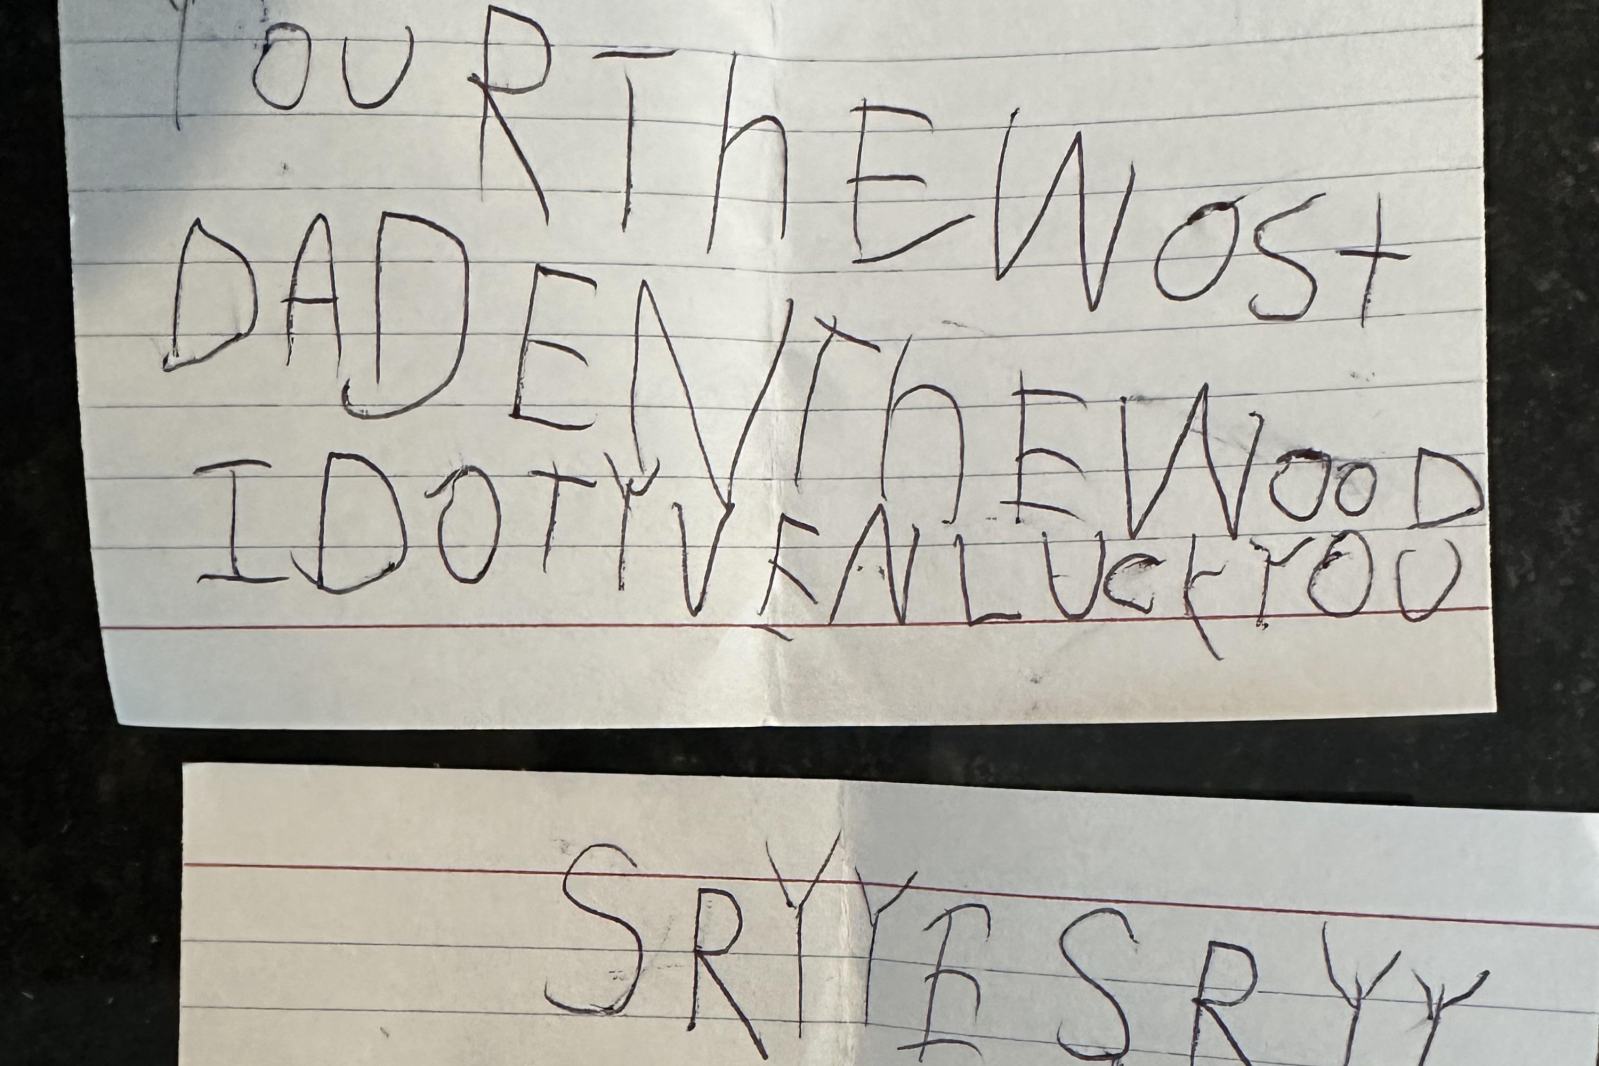 YOUR ThE WOSt
DAD EN ThE WOOD
I DOTY VEN LUCK YOU
SRYYE SRYY